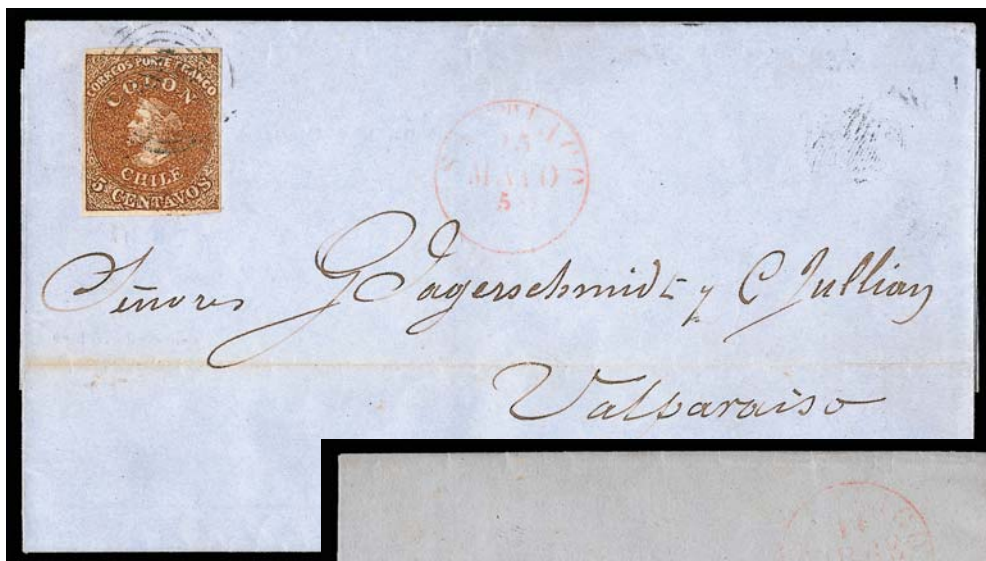 CORREOS PORTE FRANCO
COLON
CHILE
5 CENTAVOS
SANTIAGO
25
MAYO
Señores G Jagerschmidt y C Jullian
Valparaiso